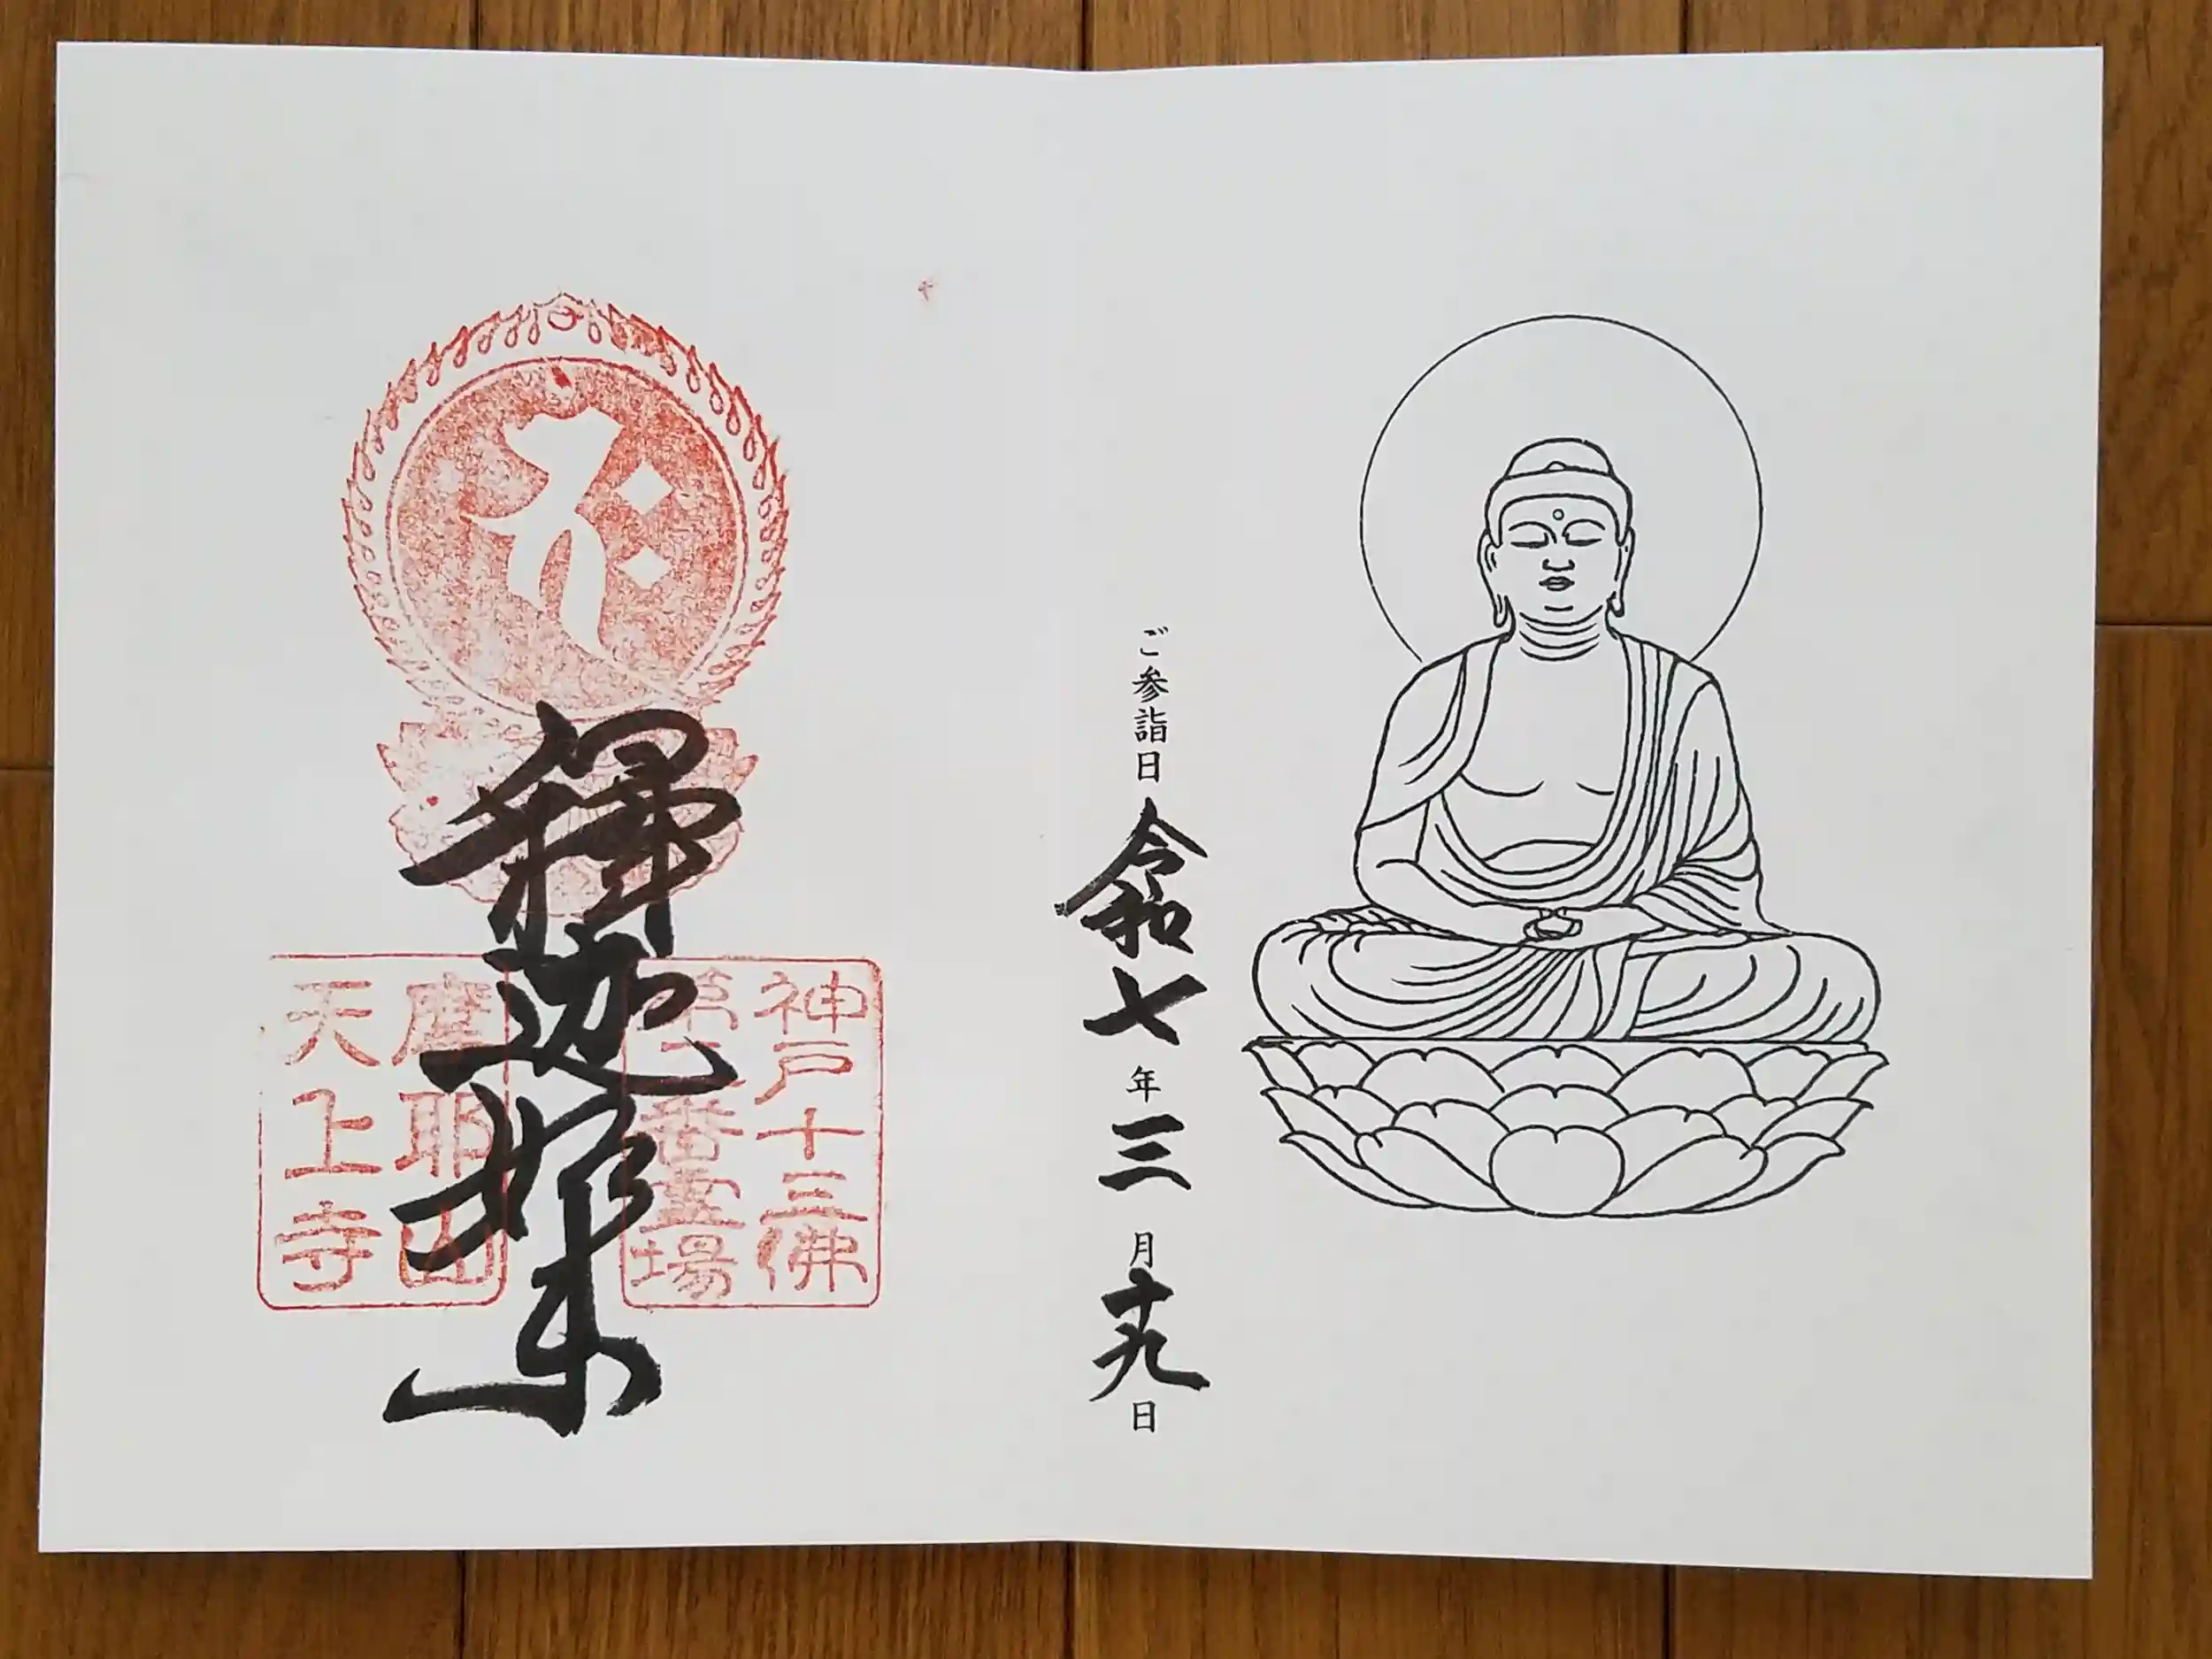 ご参詣日 令和七年三月十九日
釋迦如来
神戸十三佛
第二番霊場
摩耶山
天上寺